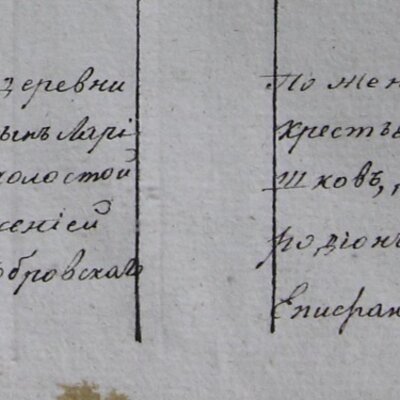 деревни
сынъ Ларі
холостой
ксенiей
обровскаго
По жен
крестья
шковъ,
родіон
Епифан